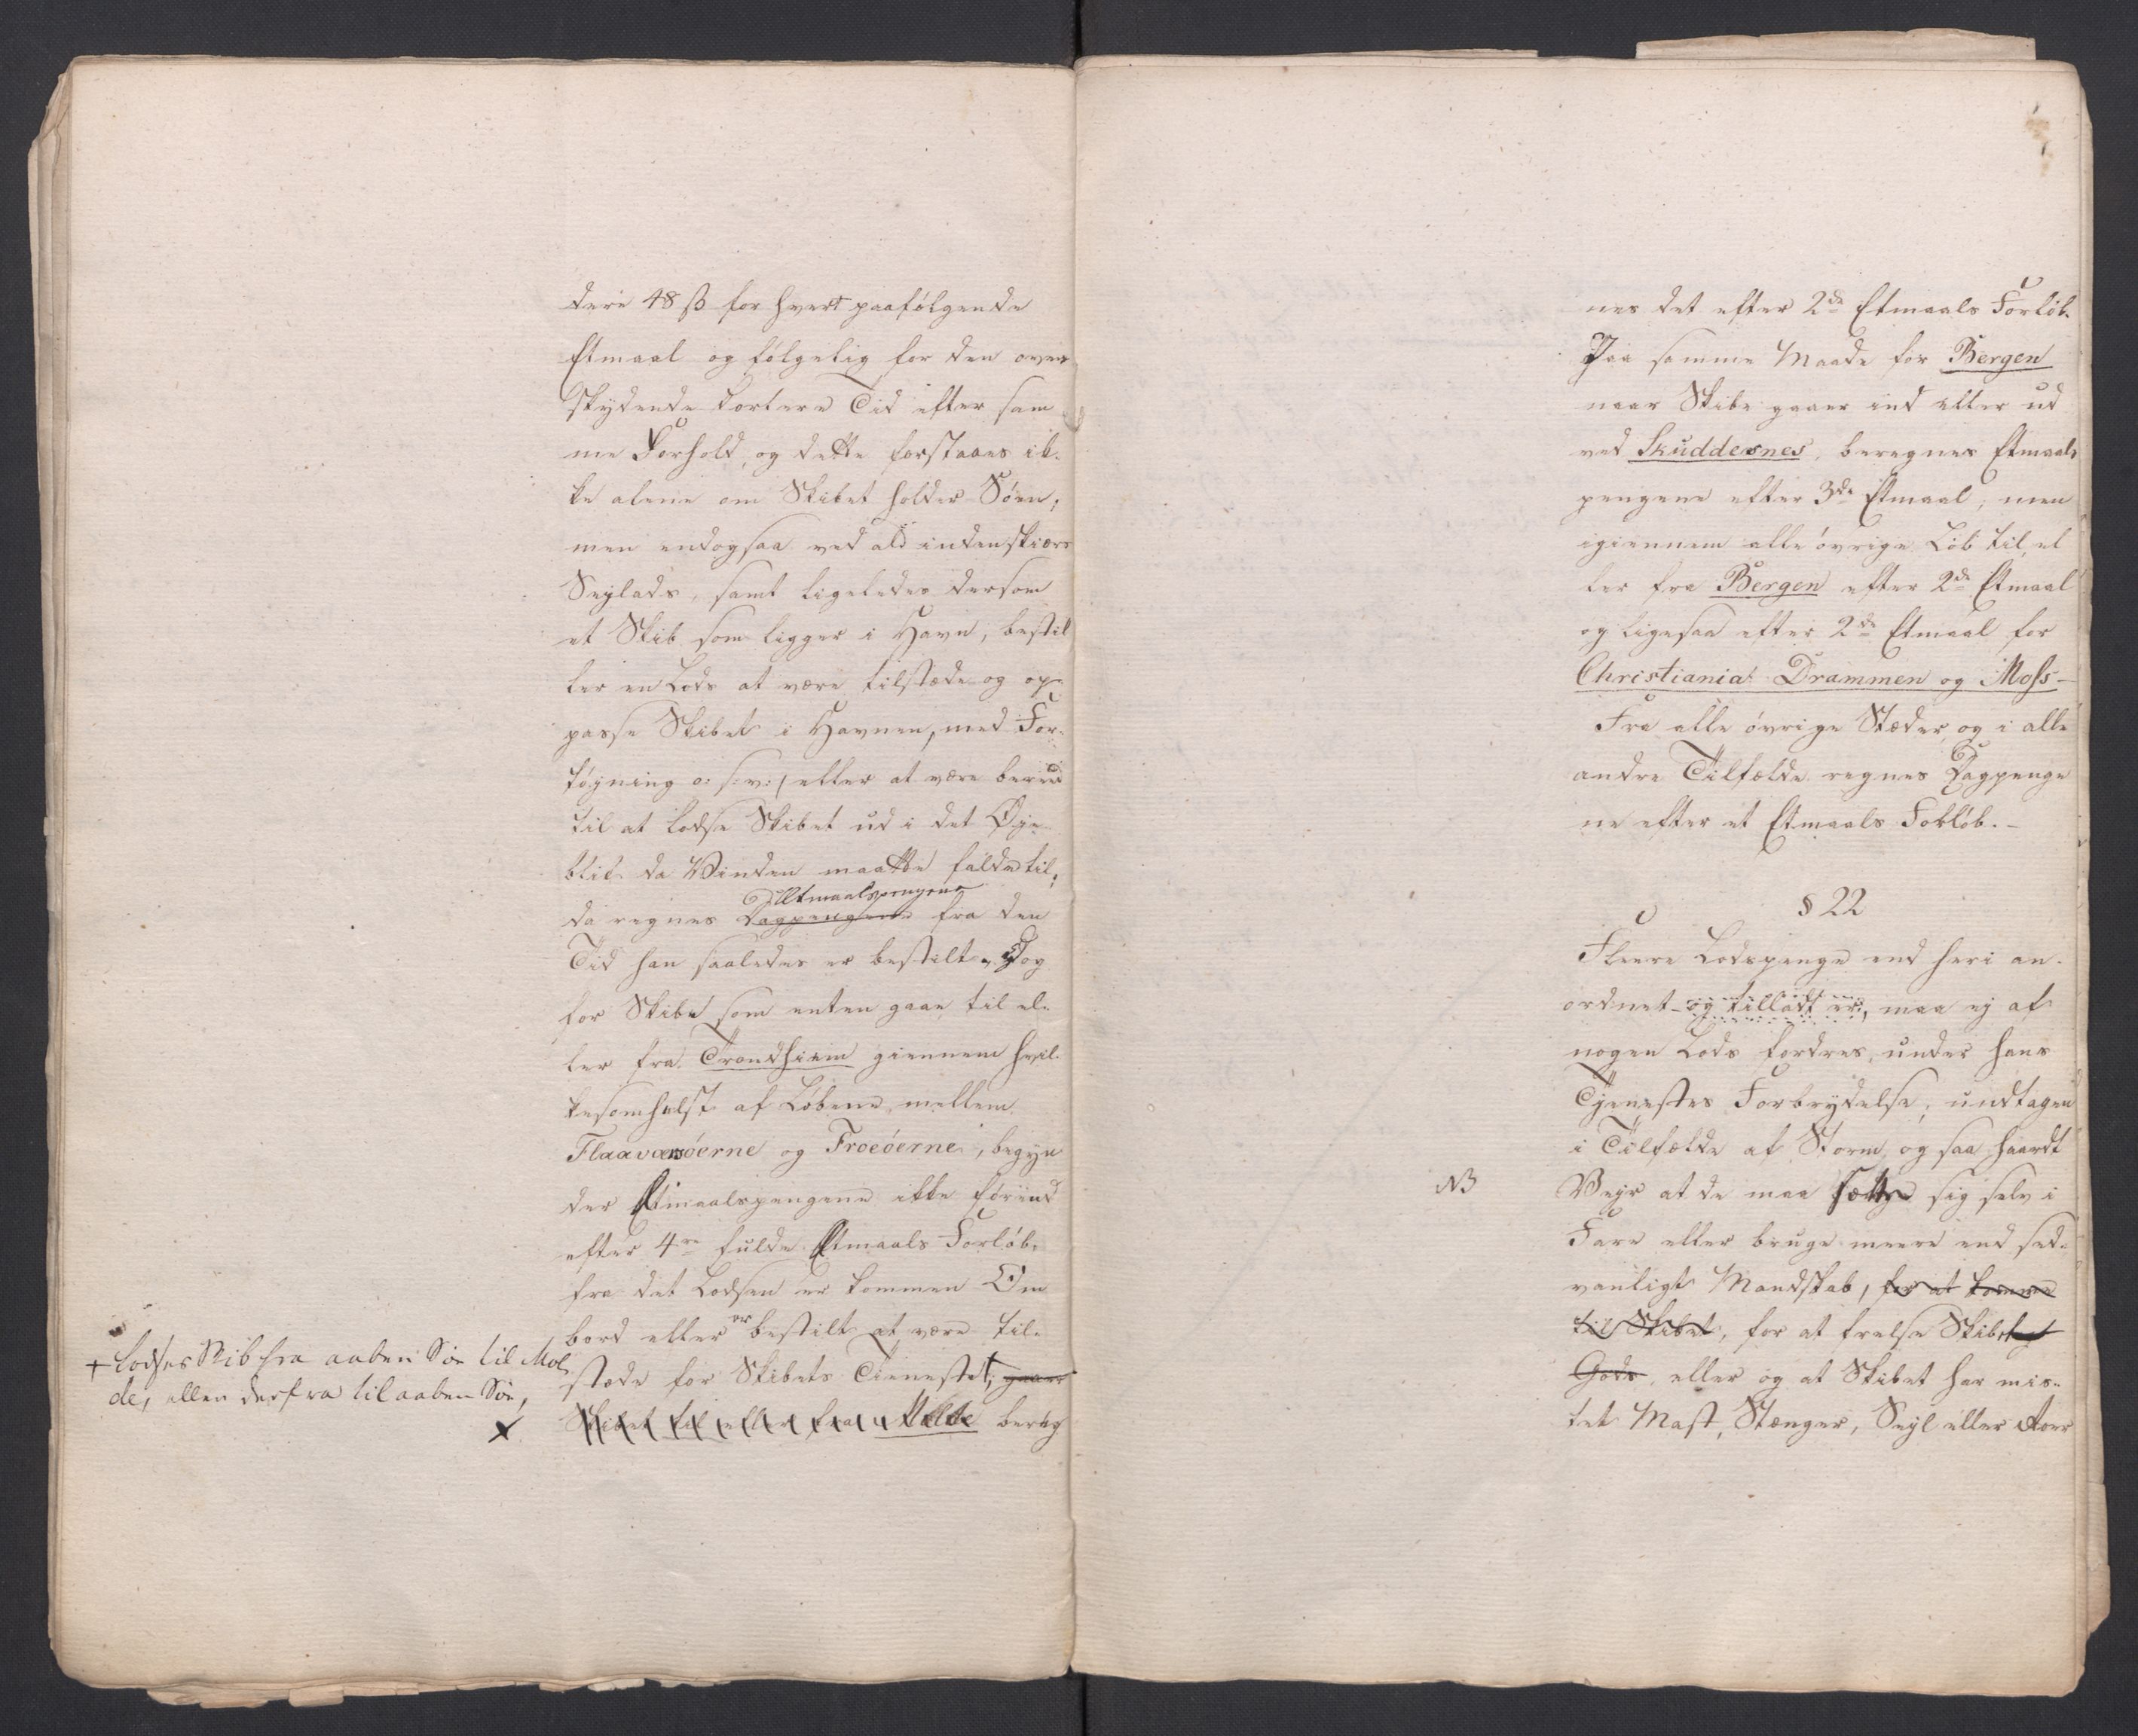 dere 48 ß for hvert paafölgende
Etmaal og fölgelig for den over
skydende kortere Tid efter sam
me Forhold, og dette forstaaes ik-
ke alene om Skibet holder Söen,
men endogsaa ved ald indenskiærs
Seylads, samt ligeledes dersom
et Skib som ligger i Havn, bestil
ler en Lods at være tilstæde og op-
passe Skibet i Havnen, med For-
töyning o: s: v:, eller at være bereed
til at lodse Skibet ud i det Øye-
blik da Vinden maatte falde til,
Etmaalspengene
da regnes Dagpengene fra den
Tid han saaledes er bestilt. Dog
for Skibe som enten gaae til el-
ler fra Trondhiem giennem hvil-
kesomhelst af Löbene mellem
Flaaværöerne og Froeöerne, begyn
der Etmaalspengene ikke förend
efter 4re fulde Etmaals Forlöb,
fra det Lodsen er kommen Om
bord eller er bestilt at være til-
stæde for Skibets Tieneste +, gaaer
Skibet til eller fra Molde bereg
+ lodses Skib fra aaben Söe til Mol
de, eller derfra til aaben Söe,
x
nes det efter 2de Etmaals Forlöb.
Paa samme Maade for Bergen
naar Skibe gaaer ind eller ud
ved Skuddesnes, beregnes Etmaals
pengene efter 3de Etmaal, men
igiennem alle övrige Löb til el
ler fra Bergen efter 2de Etmaal
og ligesaa efter 2de Etmaal for
Christiania Drammen og Moss-
Fra alle övrige Stæder og i alle
andre Tilfælde regnes Dagpenge
ne efter et Etmaals Forlöb. -
§ 22
Fleere Lodspenge end heri an-
ordnet og tilladt er, maa ej af
nogen Lods fordres, under hans
Tjenestes Forbrydelse, undtagen
i Tilfælde af Storm og saa haardt
NB
Vejr at de maa sætte sig selv i
Fare eller bruge meere end sæd-
vanligt Mandskab, for at komme
til Skibet, for at frelse Skib og
Gods, eller og at Skibet har mis-
tet Mast, Stænger, Sejl eller Roer